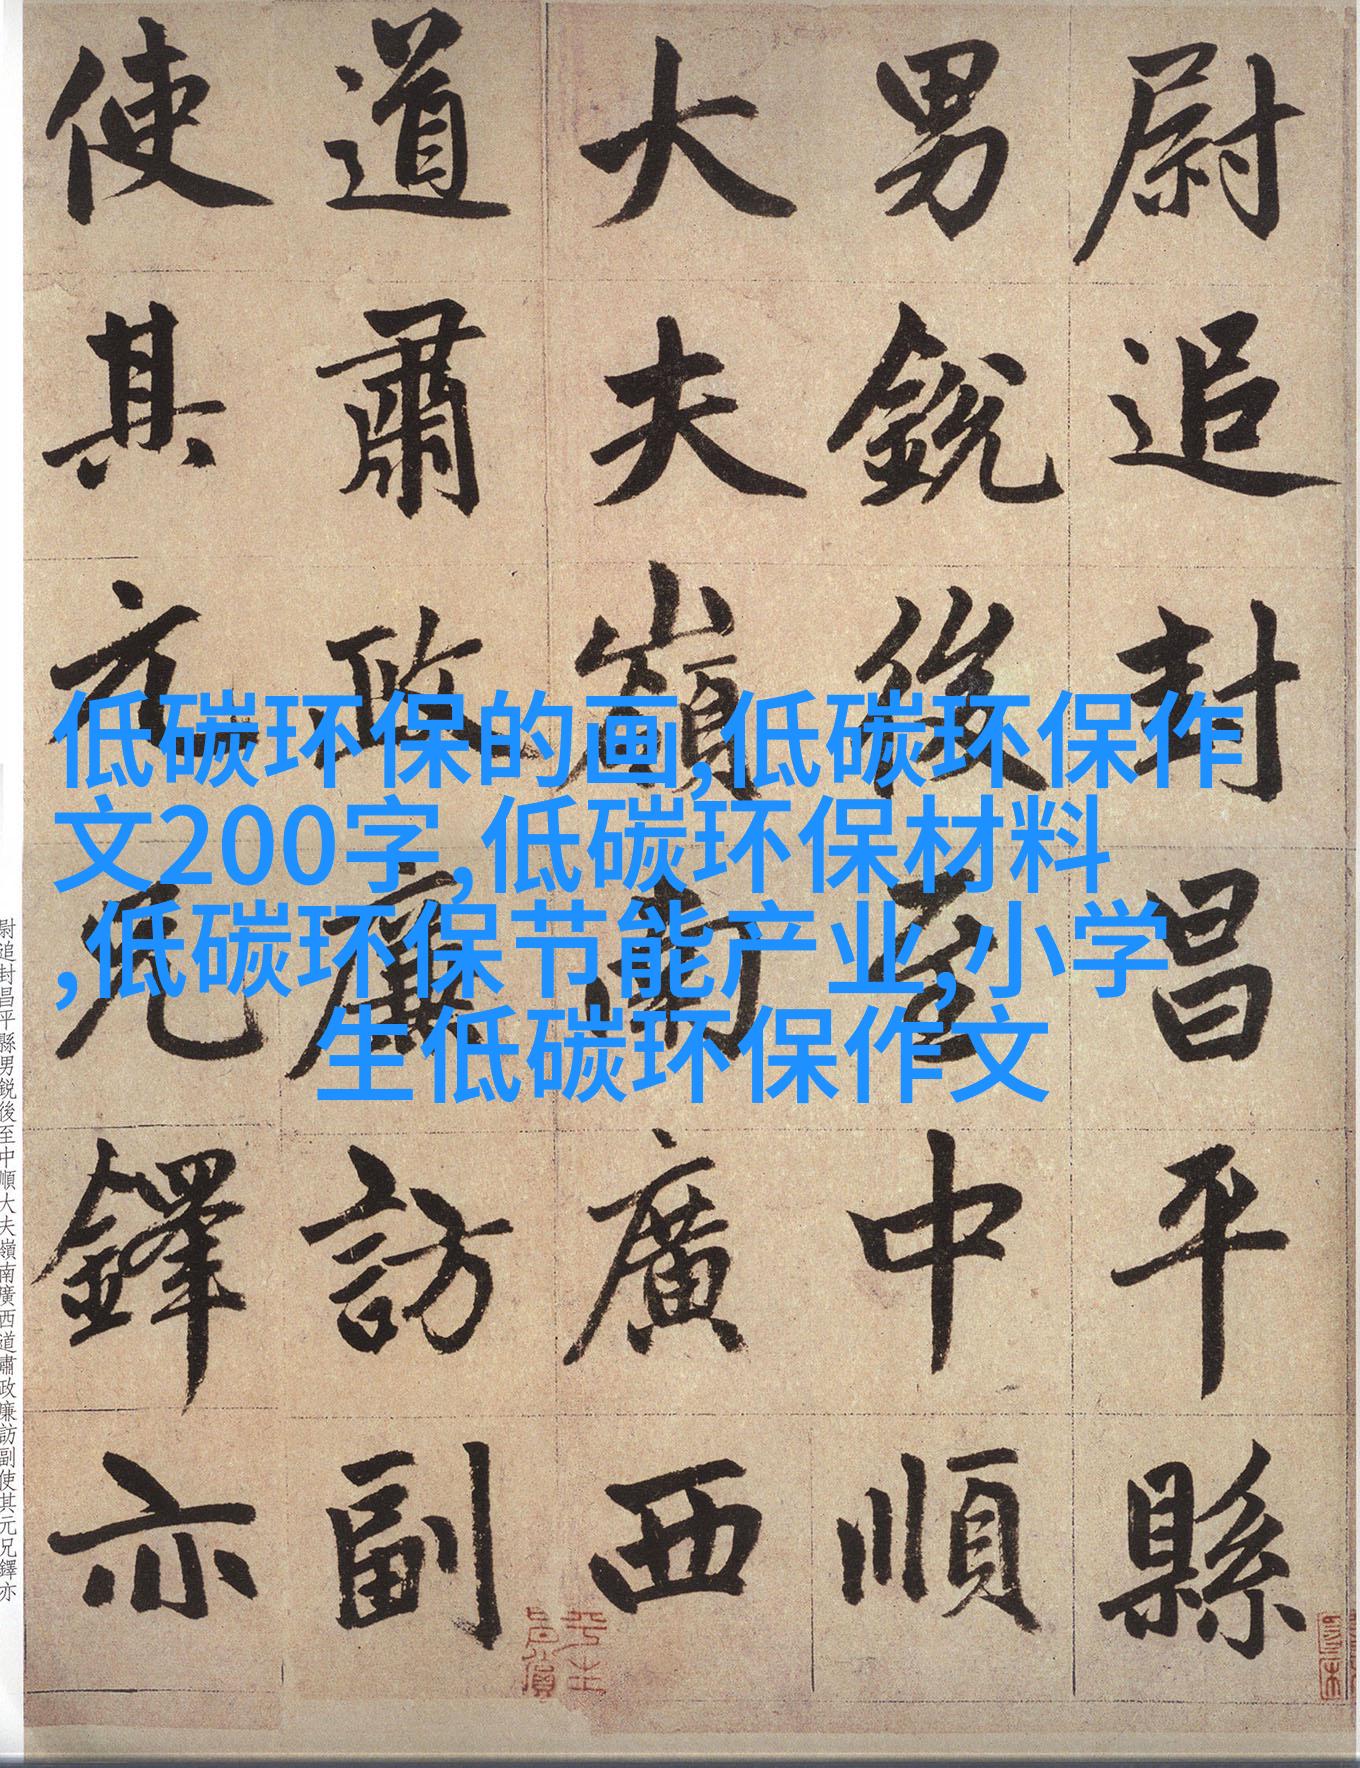 尉追封昌平縣
男銳後至中順
大夫嶺南廣西
道肅政廉訪副
使其元兄鐸亦
低碳环保的画,低碳环保作
文200字,低碳环保材料
,低碳环保节能产业,小学
生低碳环保作文
尉追封昌平縣男銳後至中順大夫嶺南廣西道肅政廉訪副使其元兄鐸亦